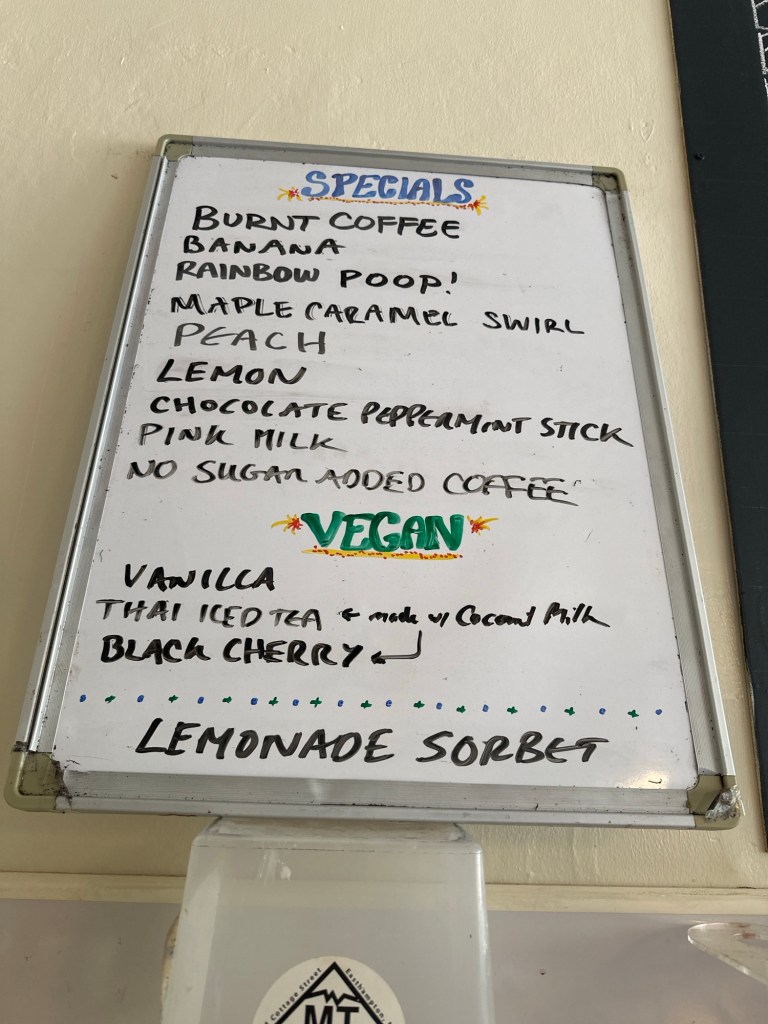 SPECIALS
BURNT COFFEE
BANANA
RAINBOW POOP!
MAPLE CARAMEL SWIRL
PEACH
LEMON
CHOCOLATE PEPPERMINT STICK
PINK MILK
NO SUGAR ADDED COFFEE
VEGAN
VANILLA
THAI ICED TEA ← made w/ Coconut Milk
BLACK CHERRY
LEMONADE SORBET
Cottage Street Easthampton,
MT